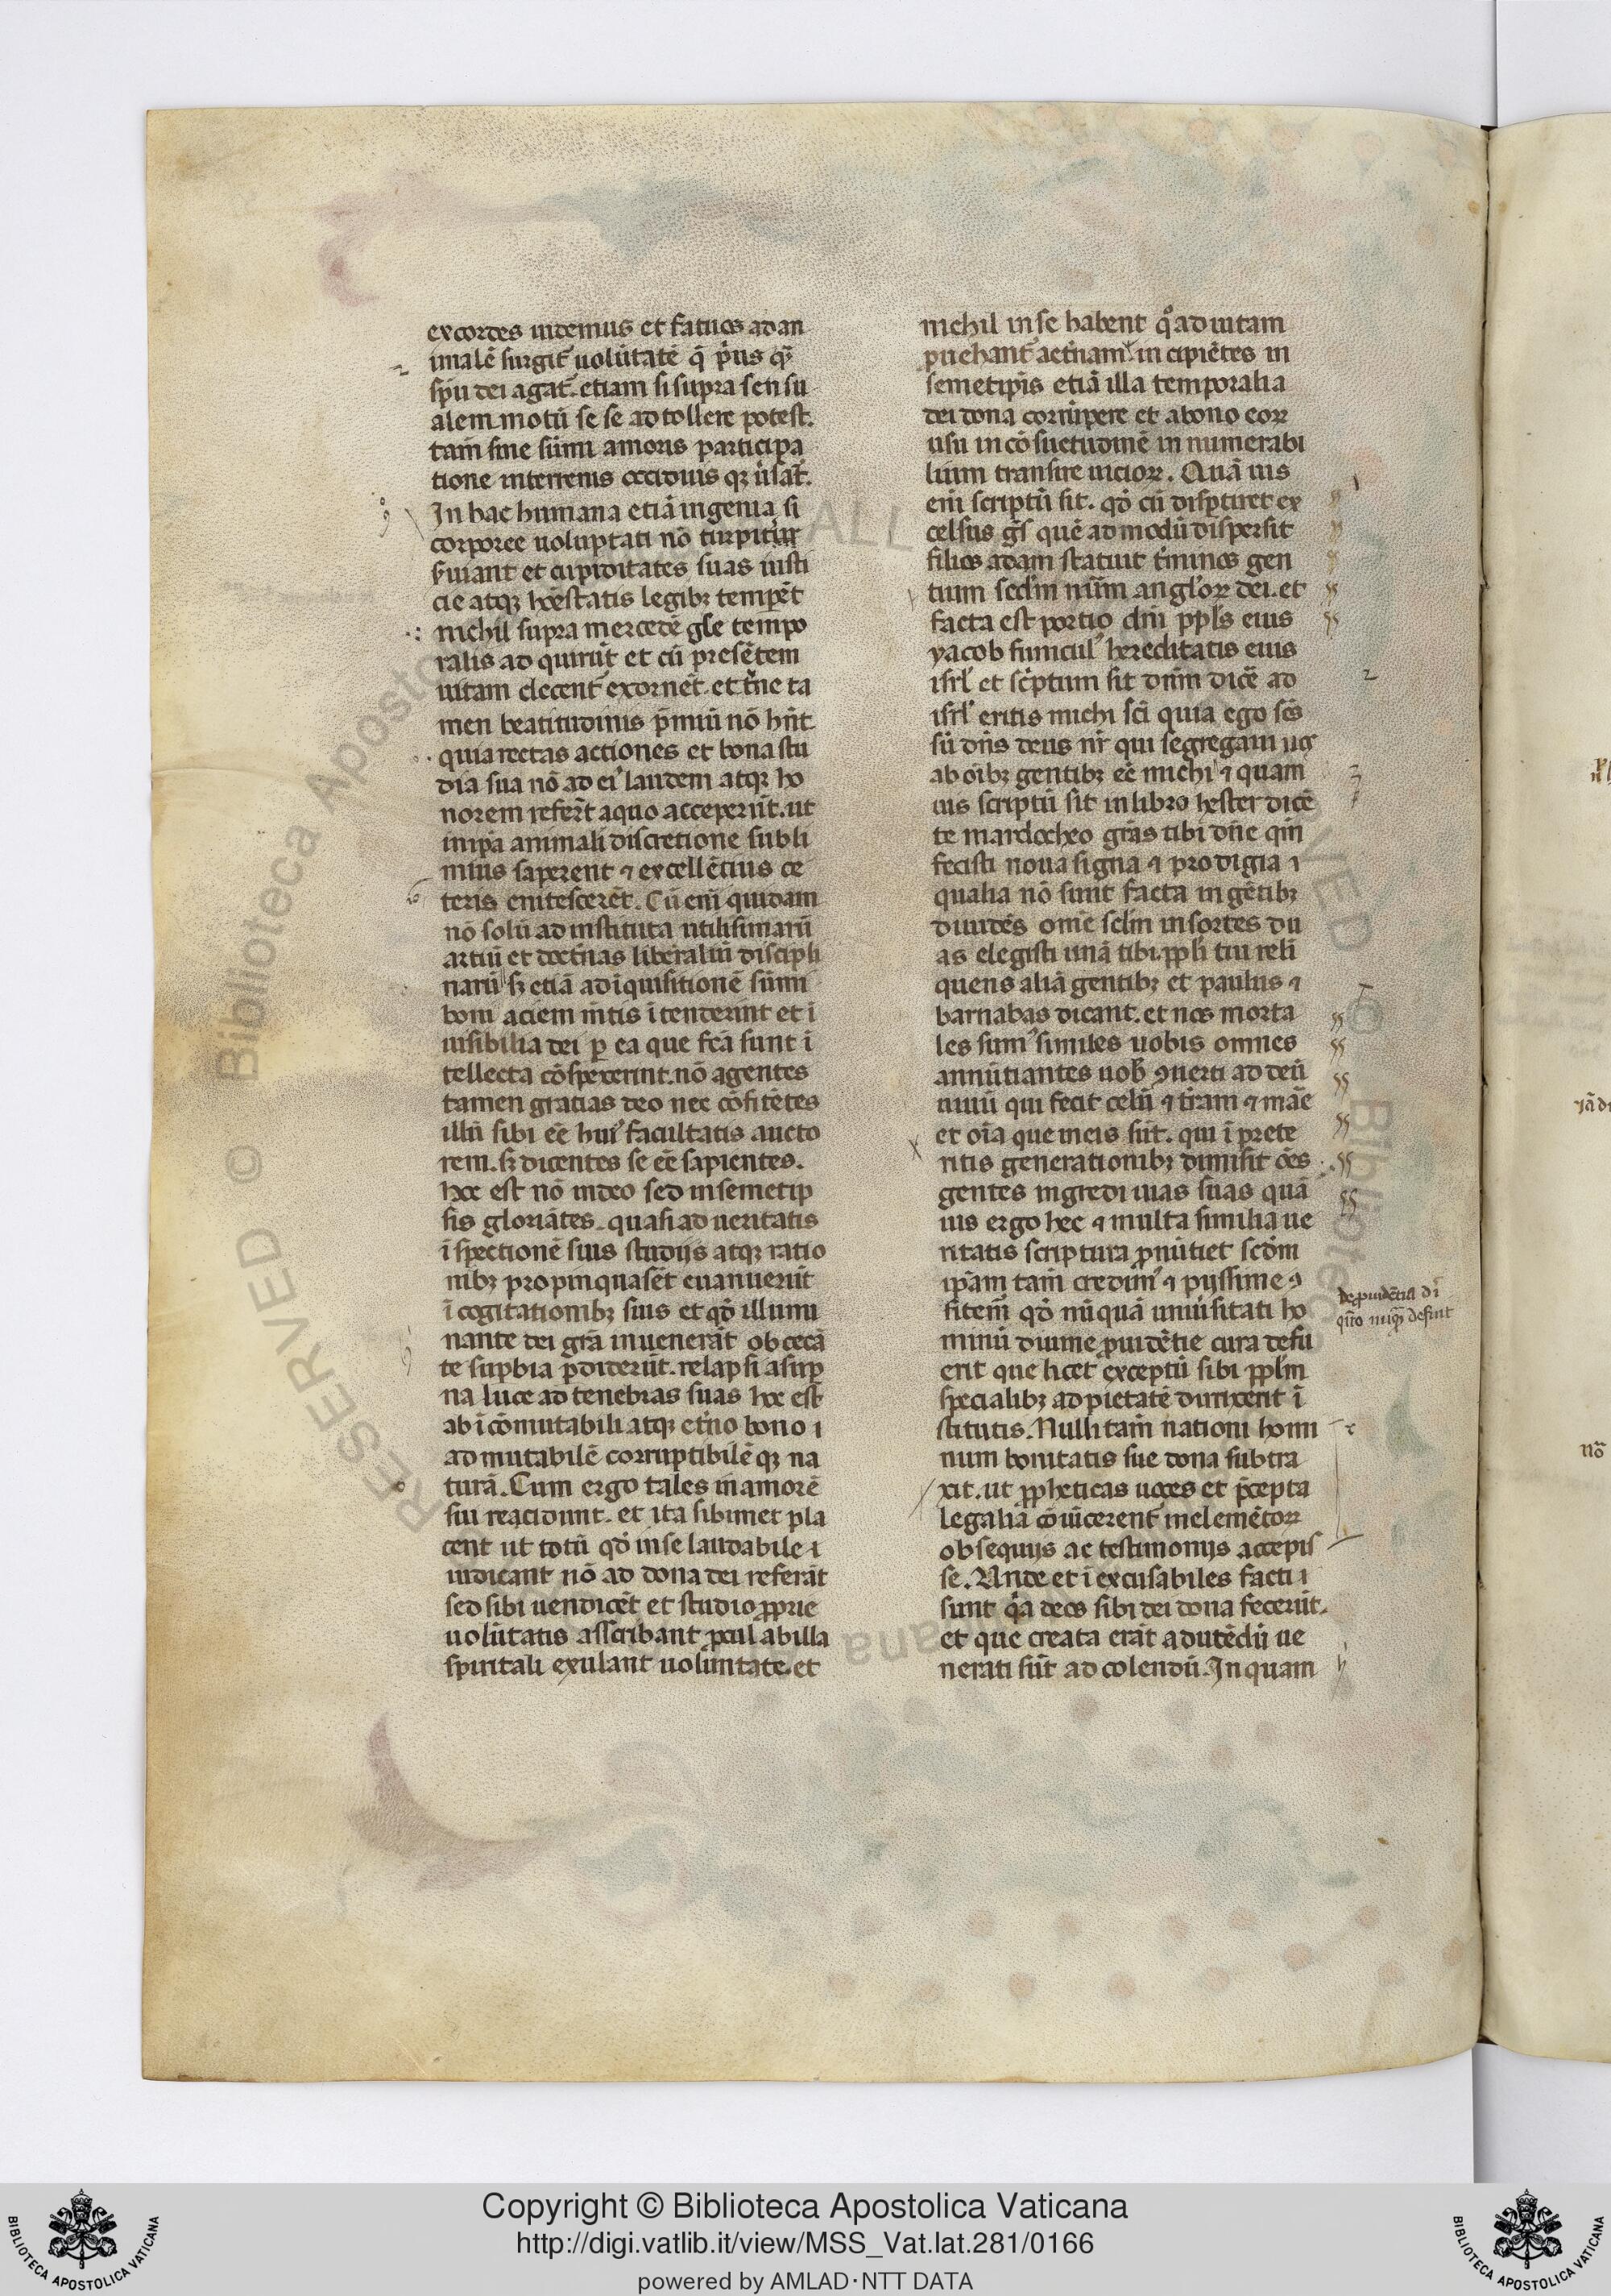 excordes uidemus et fatuos ad an
imalē surgit uolūtatē q̄ p̄us q̄
sp̄u dei agat̄. etiam si supra sensu
alem motū se se adtollere potest.
tam̄ sine sūmi amoris participa
tione interrenis occiduis qꝫ ūsat̄.
In hac humana etiā ingenia si
corporee uoluptati nō turpitur
s̄uiant et cupiditates suas iusti
cie atqꝫ hōestatis legibꝫ tempēt
nichil supra mercedē gl̄e tempo
ralis adquirūt et cū presētem
uitam decent̄ exornēt. et̄ne ta
men beatitudinis p̄miū nō hn̄t
quia rectas actiones et bona stu
dia sua nō ad eiꝰ laudem atqꝫ ho
norem refer̄t aquo acceperūt. ut
inīpa animali discretione subli
mius saperent ⁊ excellētius ce
teris enitescerēt. Cū eni̅ quidam
nō solū ad instituta utilisimarū
artiū et doct̄nas liberaliū discipli
narū sꝫ etiā ad īquisitionē sūmi
boni aciem m̄tis ītenderint et ī
uisibilia dei ꝑ ea que fc̄a sunt ī
tellecta cōspexerint. nō agentes
tamen gratias deo nec cōfitētes
illū sibi eē huiꝰ facultatis aucto
rem. sꝫ dicentes se eē sapientes.
hoc est nō indeo sed insemetip
sis gloriātes. quasi ad ueritatis
īspectionē suis studijs atqꝫ ratio
nibꝫ propinquasēt euanuerūt
ī cogitationibꝫ suis et qd̄ illumi
nante dei grā inuenerāt obcecā
te supbia ꝑdiderūt. relapsi asup
na luce ad tenebras suas hoc est
ab īcōmutabili atqꝫ et̄no bono ı
ad mutabilē corruptibilē qꝫ na
turā. Cum ergo tales inamorē
sui reacidunt. et ita sibimet pla
cent ut totū qd̄ inse laudabile ı
iudicant nō ad dona dei referāt
sed sibi uendicēt et studio ꝓprie
uolūtatis asscribant ꝓcul abilla
spiritali exulant uolūntate. et
nichil inse habent qͦ ad uitam
puehant̄ aet̄nam. incipiētes in
semetip̄is etiā illa temporalia
dei dona corrūpere et abono eoꝝ
usu incōsuetudinē innumerabi
lium transire uicioꝝ. Quā uis
eni̅ scriptū sit. qd̄ cū disp̄tiret ex
celsus gē̄s quē admodū dispersit
filios adam statuit t̄minos gen
tium scd̄m nūm angl̓oꝝ dei. et
facta est portio dn̄i ppl̓s eius
yacob funiculꝰ hereditatis eius
isrl̓ et sc̄ptum sit dn̄m dicē ad
isrl̓ eritis michi sc̄i quia ego sc̄s
sū dn̄s deus nr̄ qui segregaui uos
ab oīb̄ꝫ gentibꝫ eē michi ⁊ quam
uis scriptū sit inlibro hester dicē
te mardocheo grās tibi dn̄e qm̄
fecisti noua signa ⁊ prodigia ı
qualia nō sunt facta in gētibꝫ
diuidēs omē scl̄m insortes du
as elegisti unā tibi ppl̓i tui reli
quens aliā gentibꝫ et paulus ⁊
barnabas dicant. et nos morta
les sumꝰ similes uobis omnes
annūtiantes uob̄ ꝯuerti ad deū
uiuū qui fecit celū ⁊ t̄ram ⁊ mar̄e
et oīa que ineis sūt. qui ī prete
ritis generationibꝫ dimisit oēs
gentes ingredi uias suas quā
uis ergo hec ⁊ multa similia ue
ritatis scriptura ꝓnūtiet scd̄m
ip̄am tam̄ credimꝰ ⁊ pijssime ꝯ
fitem̄ qd̄ nūquā uniūsitati ho
minū diuine ꝓuidētie cura defu
erit que licet exceptū sibi ppl̓m
specialibꝫ ad pietatē direxerit ī
stitutis. Nulli tam̄ nationi homi
num bonitatis sue dona subtra
xit. ut ꝓpheticas uoces et p̄cepta
legalia cōuīcerent̄ inelemētoꝝ
obsequijs ac testimonijs accepis
se. Unde et ī excusabiles facti ı
sunt qͣ deos sibi dei dona fecerūt.
et que creata erāt adutēdū ue
nerati sūt ad colendū. In quam
de ꝓuidētia di̅
Copyright © Biblioteca Apostolica Vaticana
http://digi.vatlib.it/view/MSS_Vat.lat.281/0166
powered by AMLAD·NTT DATA
BIBLIOTECA APOSTOLICA VATICANA
BIBLIOTECA APOSTOLICA VATICANA